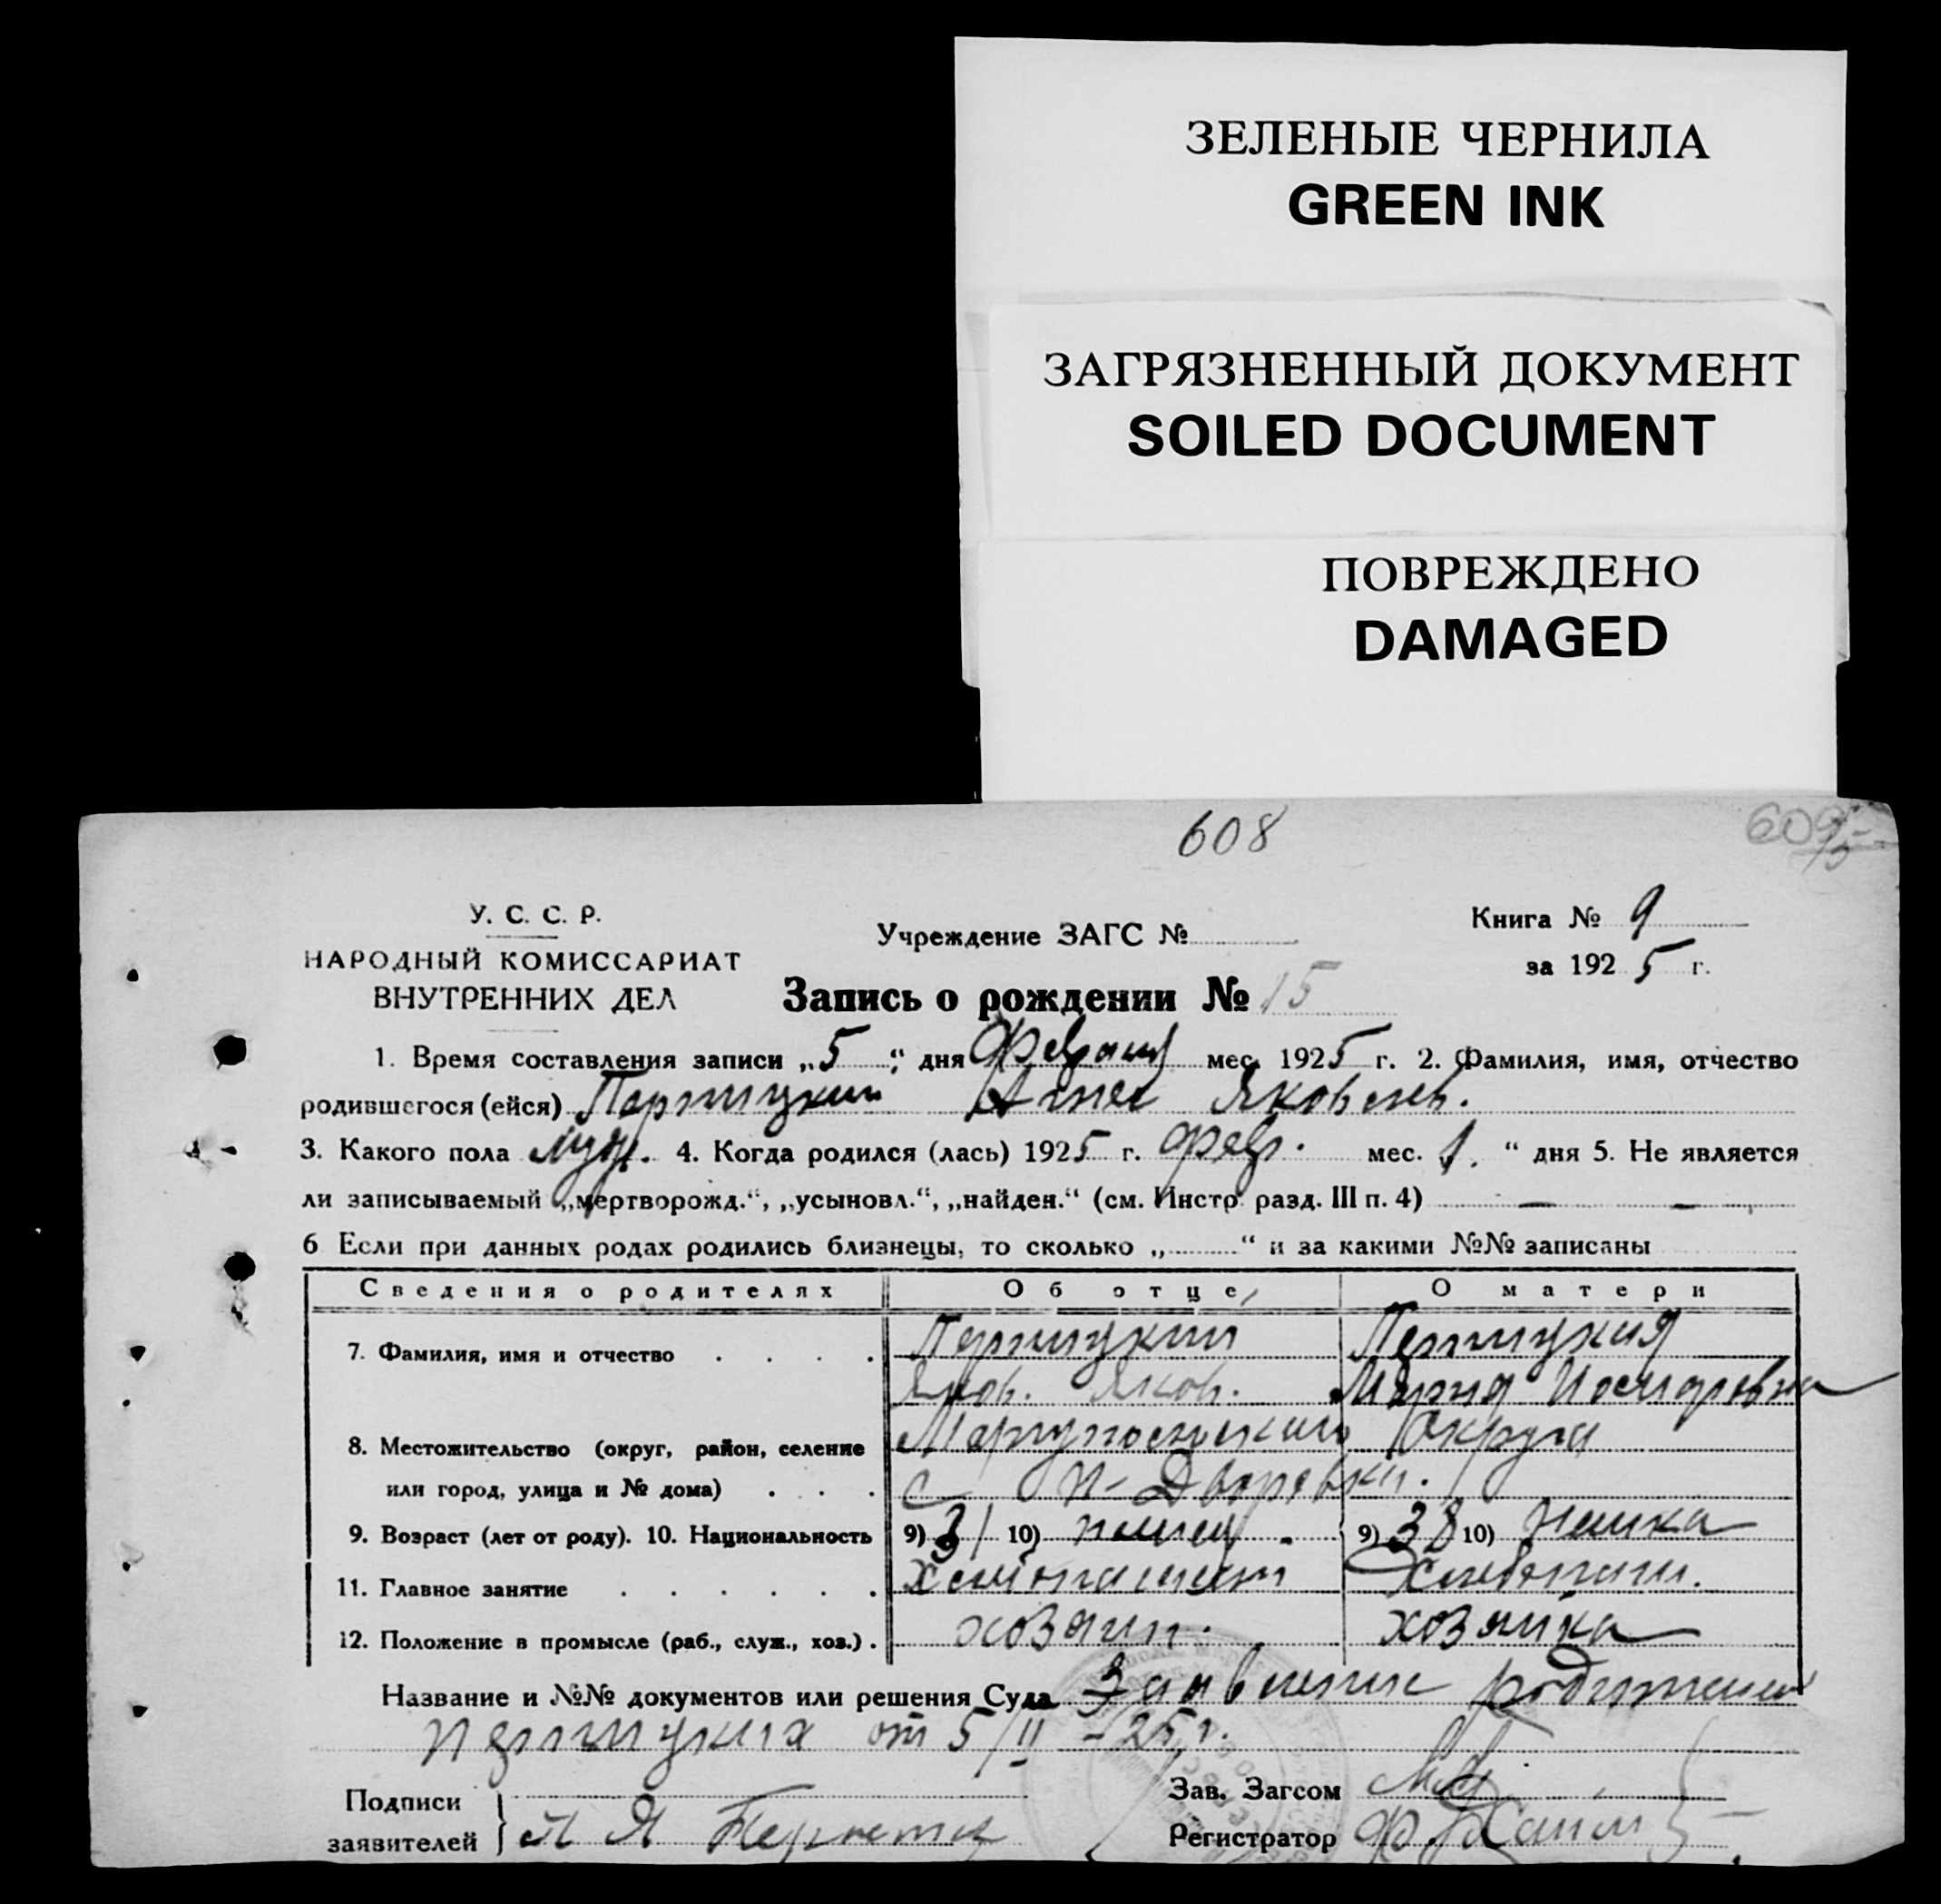 ЗЕЛЕНЫЕ ЧЕРНИЛА
GREEN INK
ЗАГРЯЗНЕННЫЙ ДОКУМЕНТ
SOILED DOCUMENT
ПОВРЕЖДЕНО
DAMAGED
608
У. С. С. Р.
НАРОДНЫЙ КОМИССАРИАТ
ВНУТРЕННИХ ДЕЛ
Учреждение ЗАГС №
Книга № 9
за 1925 г.
Запись о рождении № 15
1. Время составления записи „5“ дня Февраля мес. 1925 г. 2. Фамилия, имя, отчество
родившегося (ейся) Яковлев.
3. Какого пола муж. 4. Когда родился (лась) 1925 г. февр. мес. 1. “ дня 5. Не является
ли записываемый „мертворожд.“, „усыновл.“, „найден.“ (см. Инстр. разд. III п. 4) — —
6 Если при данных родах родились близнецы, то сколько „ “ и за какими №№ записаны
Сведения о родителях Об отце О матери
7. Фамилия, имя и отчество
Яков. Яков. Мария
8. Местожительство (округ, район, селение Мариупольского Округа
или город, улица и № дома) с Н-Дворовка.
9. Возраст (лет от роду). 10. Национальность 9) 31 10) немец 9) 38 10) немка
11. Главное занятие Хлебопашец Хлебопаш.
12. Положение в промысле (раб., служ., хоз.) хозяин. хозяйка
Название и №№ документов или решения Суда Заявление родителей
от 5/II-25 г.
Подписи
заявителей
Зав. Загсом
Регистратор